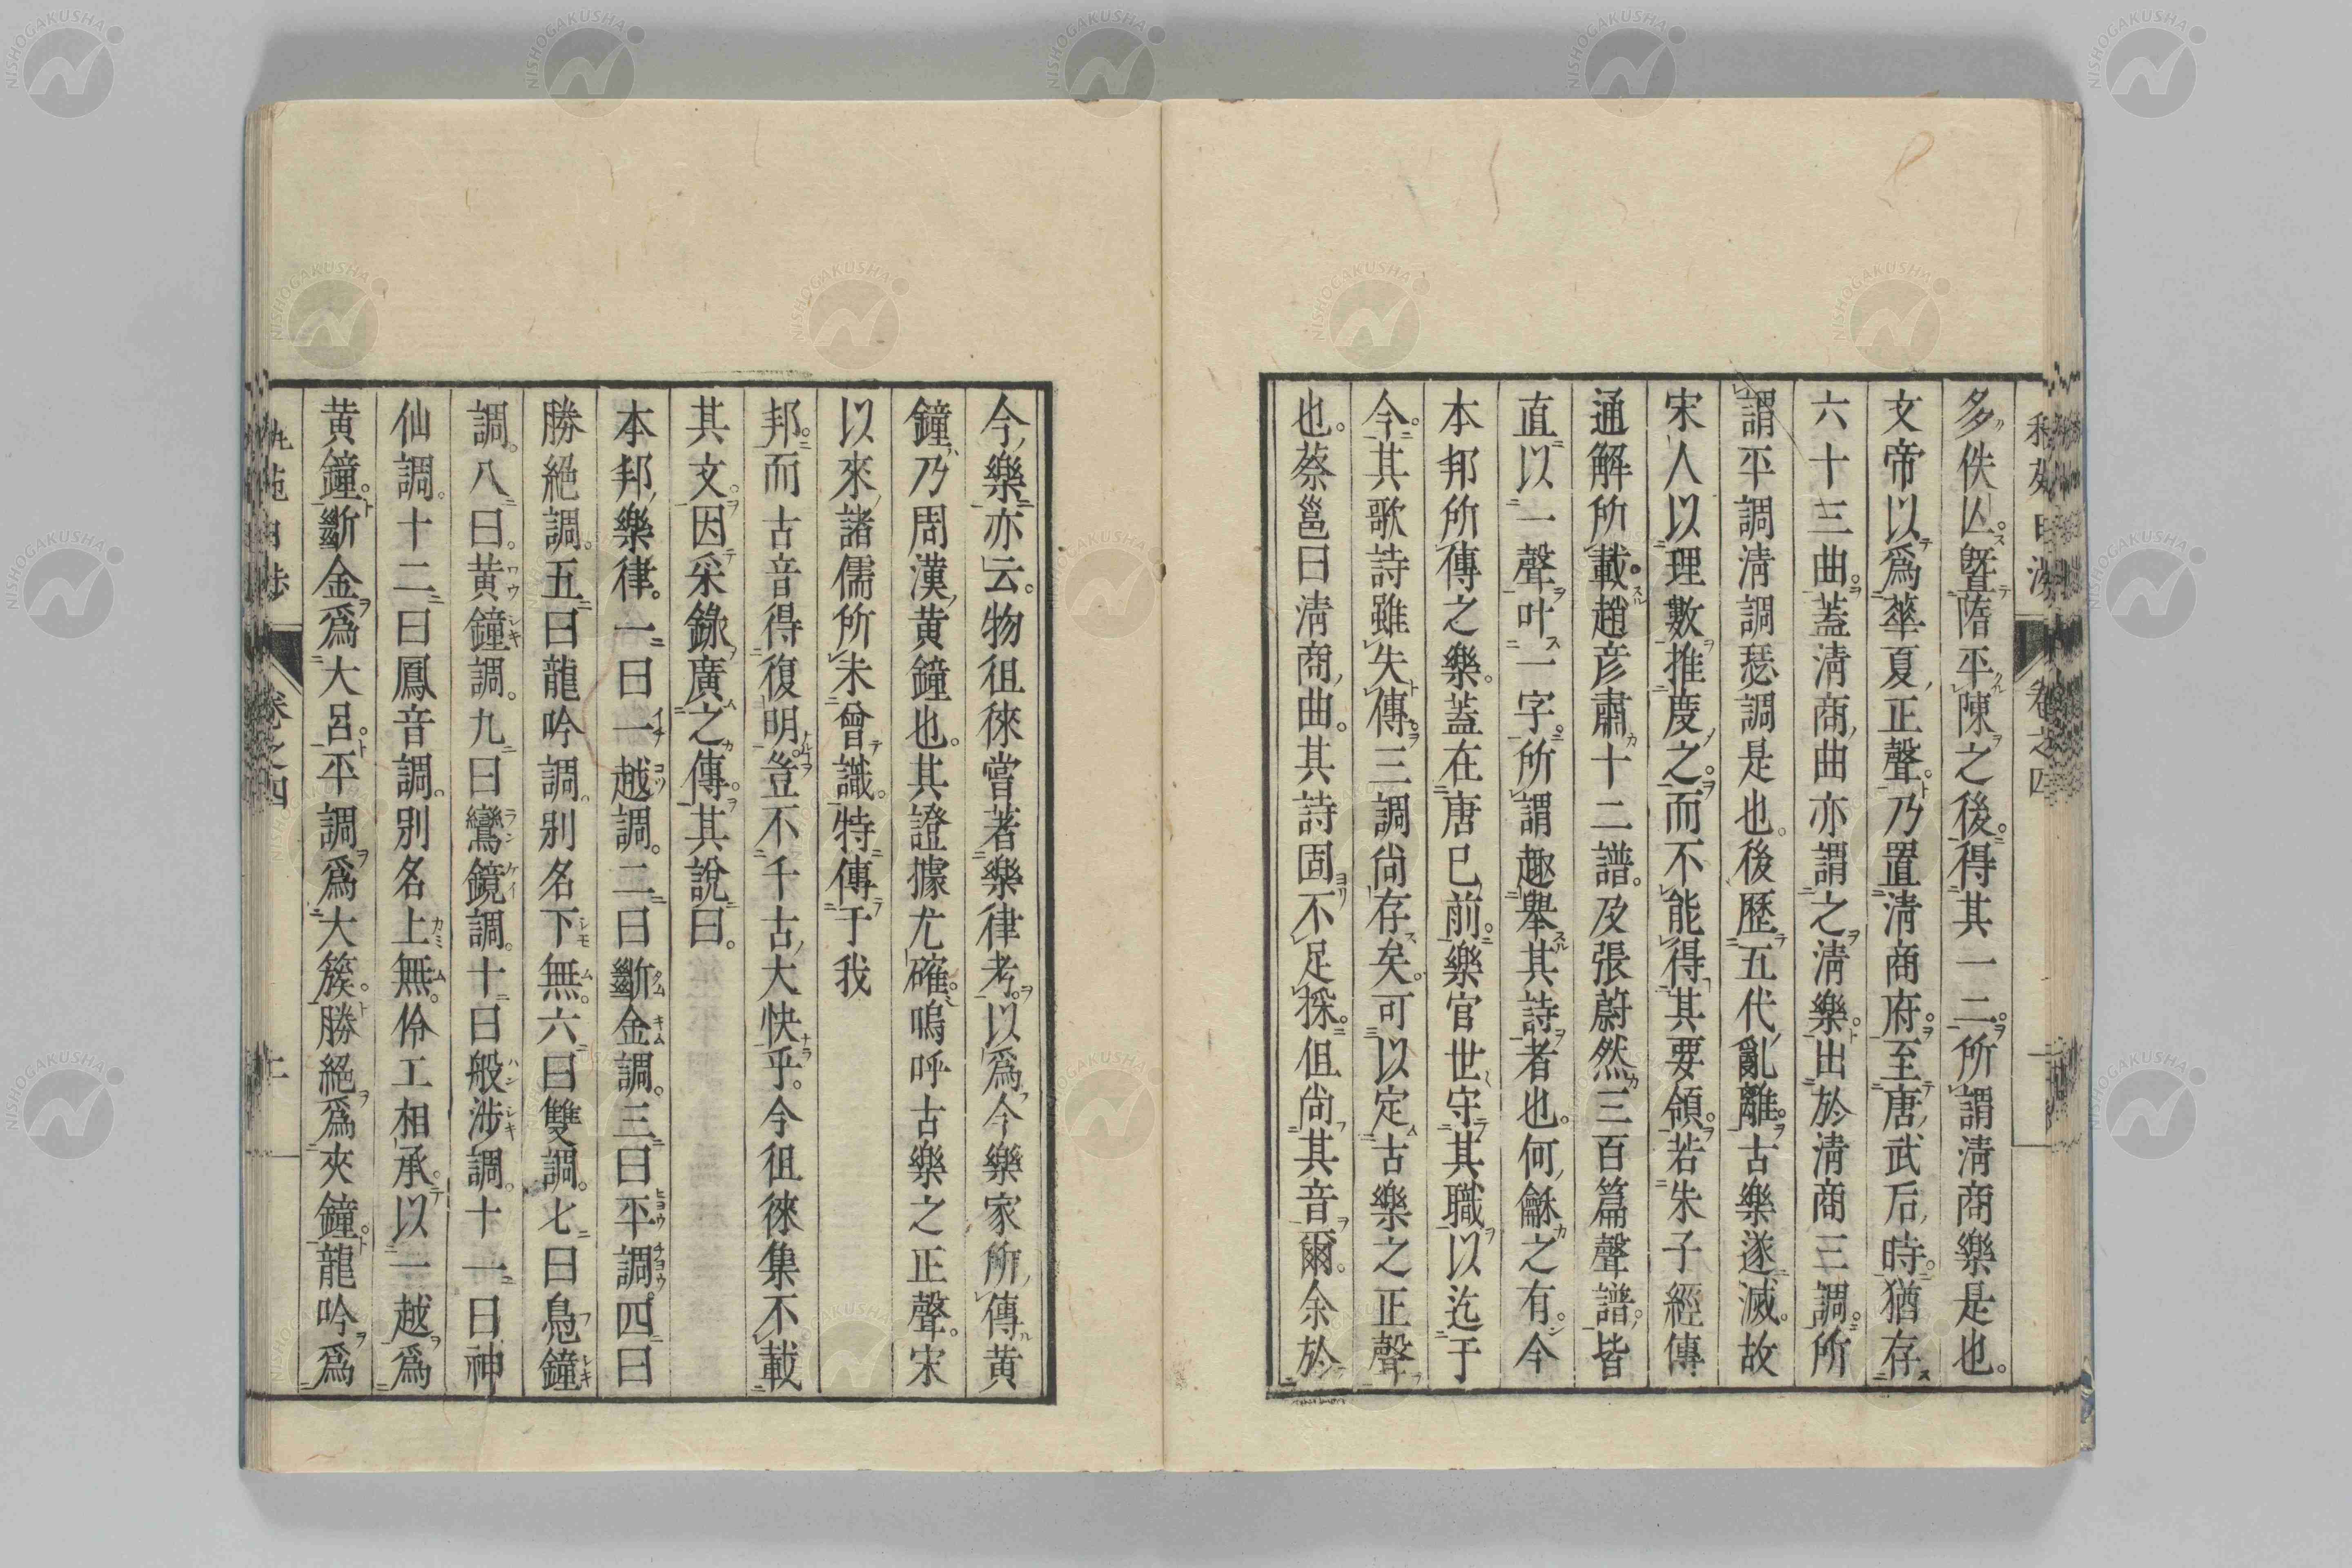 多佚亾。曁隋平陳之後。得其一二。所謂淸商樂是也。
文帝以爲華夏正聲。乃置淸商府。至唐武后時。猶存
六十三曲。蓋淸商曲亦謂之淸樂。出於淸商三調。所
謂平調淸調瑟調是也。後歷五代亂離。古樂遂滅。故
宋人以理數推度之。而不能得其要領。若朱子經傳
通解所載。趙彦肅十二譜。及張蔚然三百篇聲譜。皆
直以一聲叶一字。所謂趣舉其詩者也。何龢之有。今
本邦所傳之樂。蓋在唐已前。樂官世守其職以迄于
今。其歌詩雖失傳。三調尙存矣。可以定古樂之正聲
也。蔡邕曰淸商曲。其詩固不足採。但尙其音爾。余於
今樂亦云。物徂徠嘗著樂律考。以爲今樂家所傳黃
鐘乃周漢黃鐘也。其證據尤確。嗚呼古樂之正聲。宋
以來諸儒所未曾識。特傳于我
邦。而古音得復明。豈不千古大快乎。今徂徠集不載
其文。因采錄廣之傳。其說曰。
本邦樂律。一曰一越調。二曰斷金調。三曰平調。四曰
勝絕調。五曰龍吟調。別名下無。六曰雙調。七曰鳧鐘
調。八曰。黃鐘調。九曰鸞鏡調。十曰般涉調。十一曰神
仙調。十二曰鳳音調。別名上無。伶工相承。以一越爲
黃鐘。斷金爲大呂。平調爲大簇。勝絕爲夾鐘。龍吟爲
卷之四